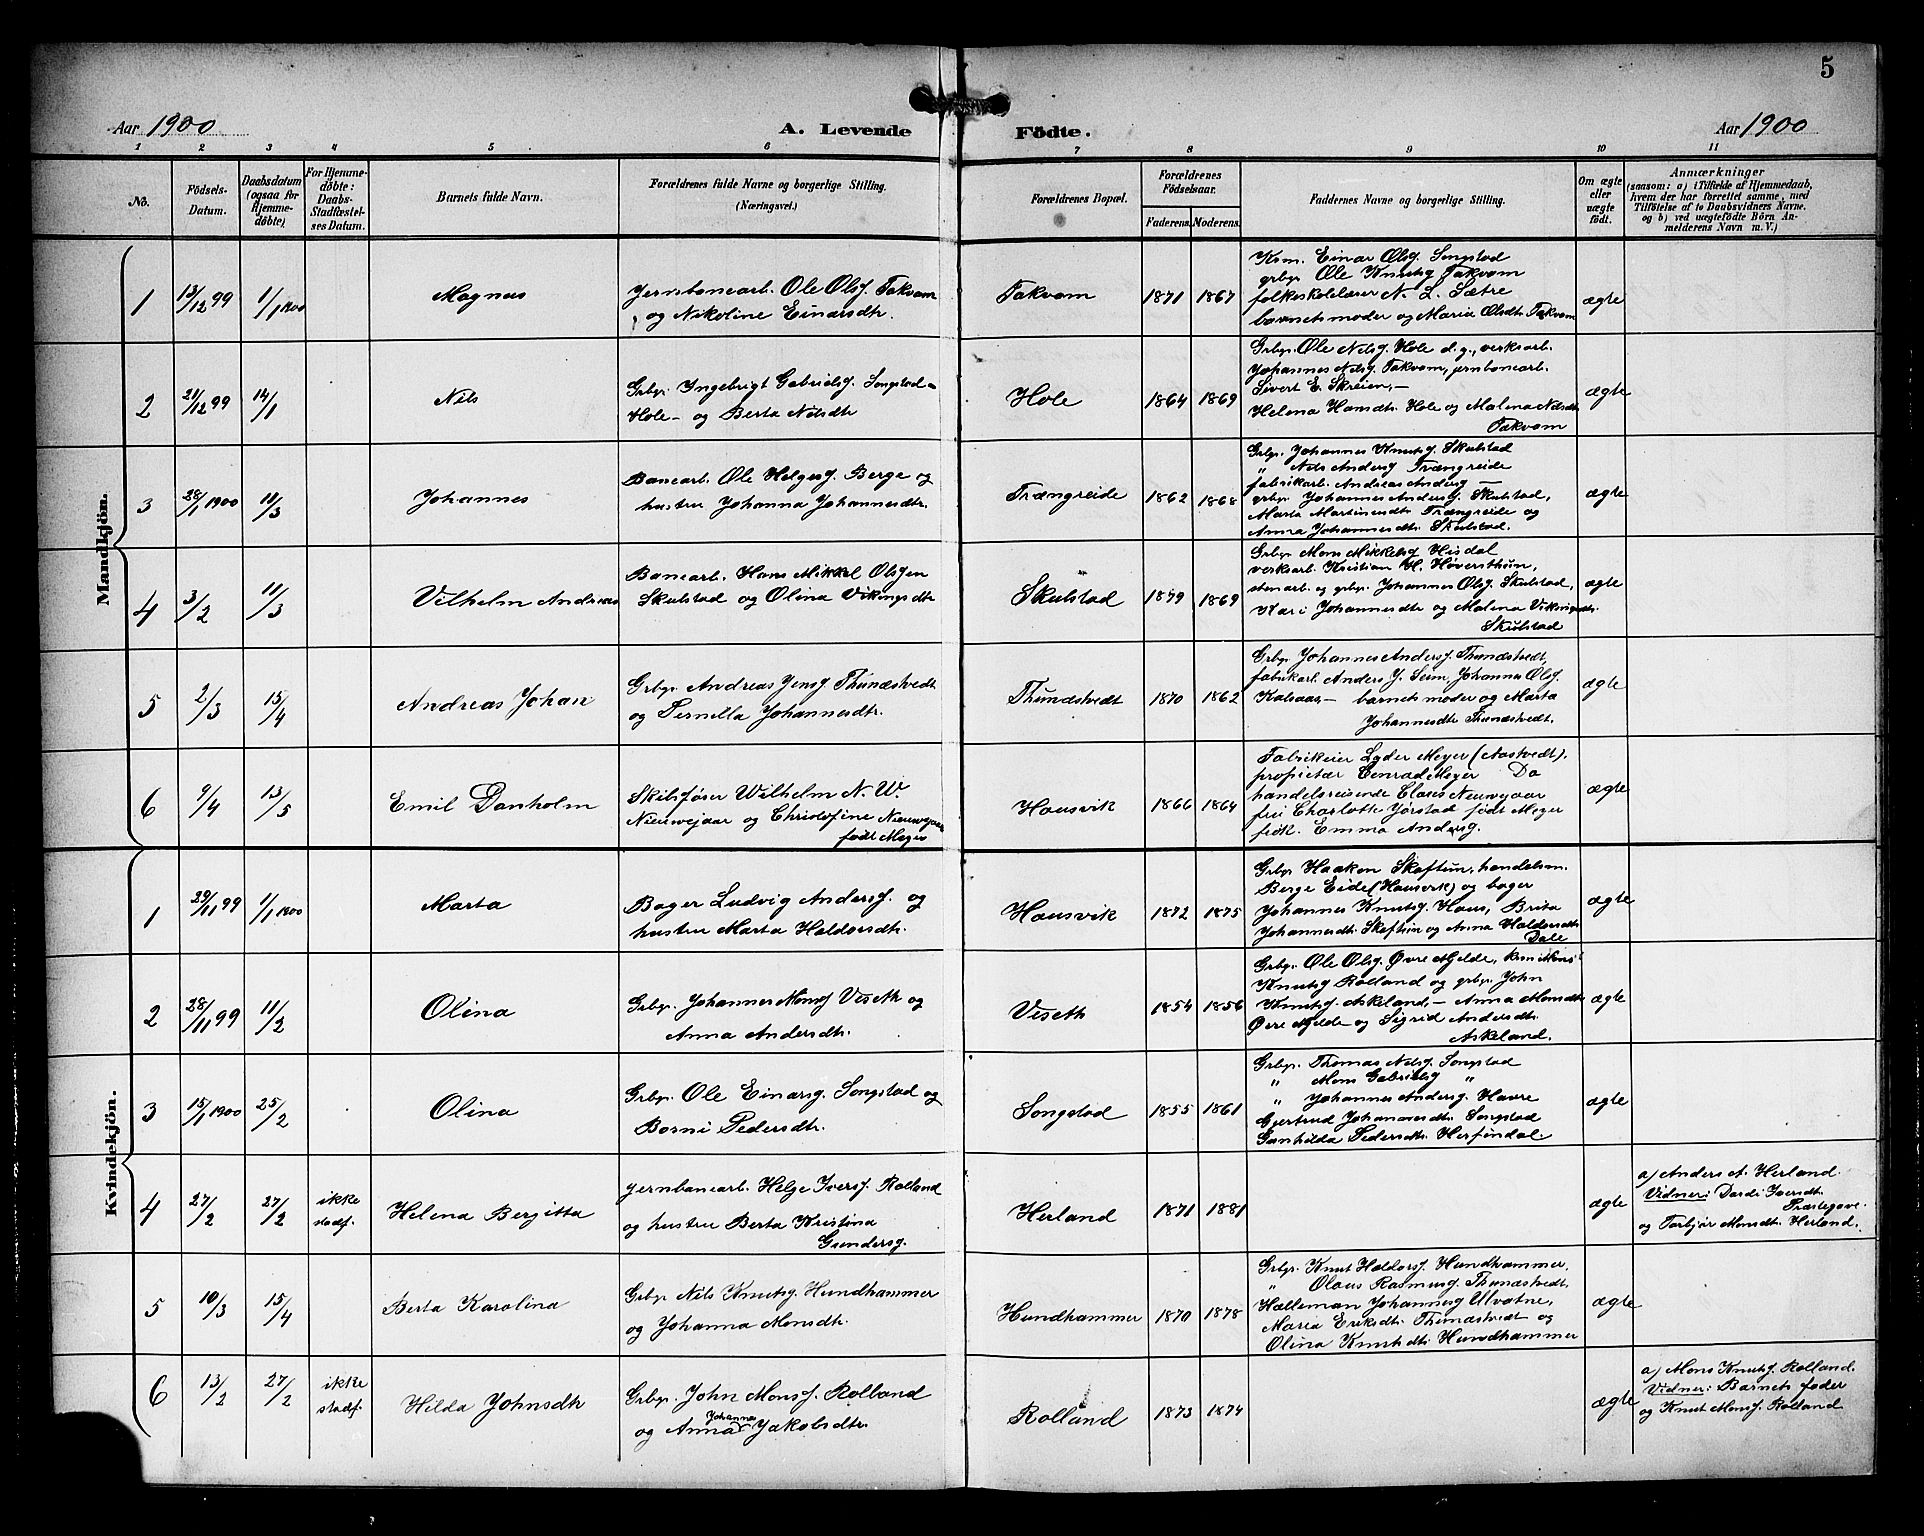 5
Aar 1900
A. Levende Födte.
Aar 1900
1 2 3 4 5 6 7 8 9 10 11
No.
Födsels-Datum.
Daabsdatum (ogsaa for Hjemmedøbte).
For Hjemmedøbte: Daabs-Stadfæstelses Datum.
Barnets fulde Navn.
Forældrenes fulde Navne og borgerlige Stilling. (Næringsvei.)
Forældrenes Bopæl.
Forældrenes Födselsaar.
Faderens. Moderens.
Faddernes Navne og borgerlige Stilling.
Om ægte eller uægte födt.
Anmærkninger
(saasom: a) i Tilfælde af Hjemmedaab, hvem der har forrettet samme, med Tilföielse af to Daabsvidners Navne. og b) ved uægtefödte Börn Anmelderens Navn m. V.)
Mandkjön.
1 13/12 99 1/1 1900 Magnus
Jernbanearb. Ole Olsf. Takvam
og Nikoline Einarsdtr.
Takvam 1871 1867
Ksm. Einar Olsf. Songstad
grbr. Ole Knutsf. Takvam
folkeskolelærer N. L. Sætre
barnets moder og Maria Olsdtr. Takvam
ægte
2 21/12 99 14/1 Nils
Grbr. Ingebrigt Gabrielsf. Songstad-
Hole- og Berta Nilsdtr
Hole 1864 1869
Grbr. Ole Nilsf. Hole d.y., verksarb.
Johannes Nilsf. Takvam, jernbanearb.
Sivert E. Skreien,-
Helena Hansdtr. Hole og Malena Nilsdtr.
Takvam
ægte
3 28/1 1900 11/3 Johannes
Banearb. Ole Helgesf. Berge og
hustru Johanna Johannesdtr.
Trængreide 1862 1868
Grbr. Johannes Knutsf. Skulstad
" Nils Andersf Trængreide
fabrikarb. Andreas Andersf -
grbr. Johannes Andersf. Skulstad,
Marta Martinusdtr Trængreide og
Anna Johannesdtr. Skulstad.
ægte
4 3/2 11/3 Vilhelm Andreas
Banearb. Hans Mikkal Olsgen
Skulstad og Olina Vikingsdtr
Skulstad 1879 1869
Grbr. Mons Mikkelsf Hisdal
verksarb. Kristian H. Hoversthun,
stenarb. og grbr. Johannes Olsf. Skulstad,
Kari Johannesdtr og Malena Vikingsdtr.
Skulstad
ægte
5 2/3 15/4 Andreas Johan
Grbr. Andreas Jensf. Thunæstvedt
og Pernilla Johannesdtr.
Thunæstvedt 1870 1862
Grbr. Johannes Andersf. Thunæstvedt,
fabrikarb. Anders J. Seim, Johannes Olsf.
Kalsaas,- barnets moder og Marta
Johannesdtr Thunæstvedt.
ægte
6 9/4 13/5 Emil Danholm
Skibsfører Wilhelm N. W.
Nieuwejaar og Christofine Nieuwejaar
født Meyer
Hausvik 1866 1864
Fabrikeier Lyder Meyer (Aastvedt).
proprietær Conrad Meyer Do
handelsreisende Claus Nieuwejaar
fru Charlotte Jørstad født Meyer
frøk. Emma Andersf.
ægte
Kvindekjön.
1 29/11 99 1/1 1900 Marta
Bager Ludvig Andersf. og
hustru Marta Haldorsdtr.
Hausvik 1872 1875
Grbr. Haakon Skaftun, handelsm.
Berge Eide (Hausvik) og bager
Johannes Knutsf. Haus, Brita
Johannesdtr. Skaftun og Anna Haldorsdtr.
Dale
ægte
2 28/11 99 11/2 Olina
Grbr. Johannes Monsf Veseth og
Anna Andersdtr.
Veseth 1854 1856
Grbr. Ole Olsf. Øvre Mjelde, ksm Mons
Knutsf. Rolland og grbr. John
Knutsf. Askeland,- Anna Monsdtr
Øvre Mjelde og Sigrid Andersdtr.
Askeland.
ægte
3 15/1 1900 25/2 Olina
Grbr. Ole Einarsf. Songstad og
Borni Pedersdtr.
Songstad 1855 1861
Grbr. Thomas Nilsf. Songstad
" Mons Gabrielsf "
" Johannes Andersf. Haure
Gjertrud Johannesdtr. Songstad
Gunhilda Pedersdtr. Herfindal.
ægte
4 27/2 27/2 ikke stadf. Helena Bergitta
Jernbanearb. Helge Iversf. Rolland
og hustru Berta Kristina
Gundersf.
Herland 1871 1881
ægte
a) Anders A. Herland.
Vidner: Dardi Iversdtr.
Præstegave.
og Torbjør Monsdtr. Herland.
5 10/3 15/4 Berta Karolina
Grbr Nils Knutsf. Hundhammer
og Johanna Monsdtr.
Hundhammer 1870 1878
Grbr. Knut Haldorsf. Hundhammer,
" Olaus Rasmusf. Thunæstvedt.
Halleman Johannesf Ulvatne,
Maria Eriksdtr. Thunæstvedt og
Olina Knutsdtr. Hundhammer
ægte
6 13/2 27/2 ikke stadf. Hilda Johnsdtr
Grbr. John Monsf. Rolland
og Anna Johanna Jakobsdtr.
Rolland 1873 1874
ægte
a) Mons Knutsf. Rolland.
Vidner: Barnets fader
og Knut Monsf. Rolland